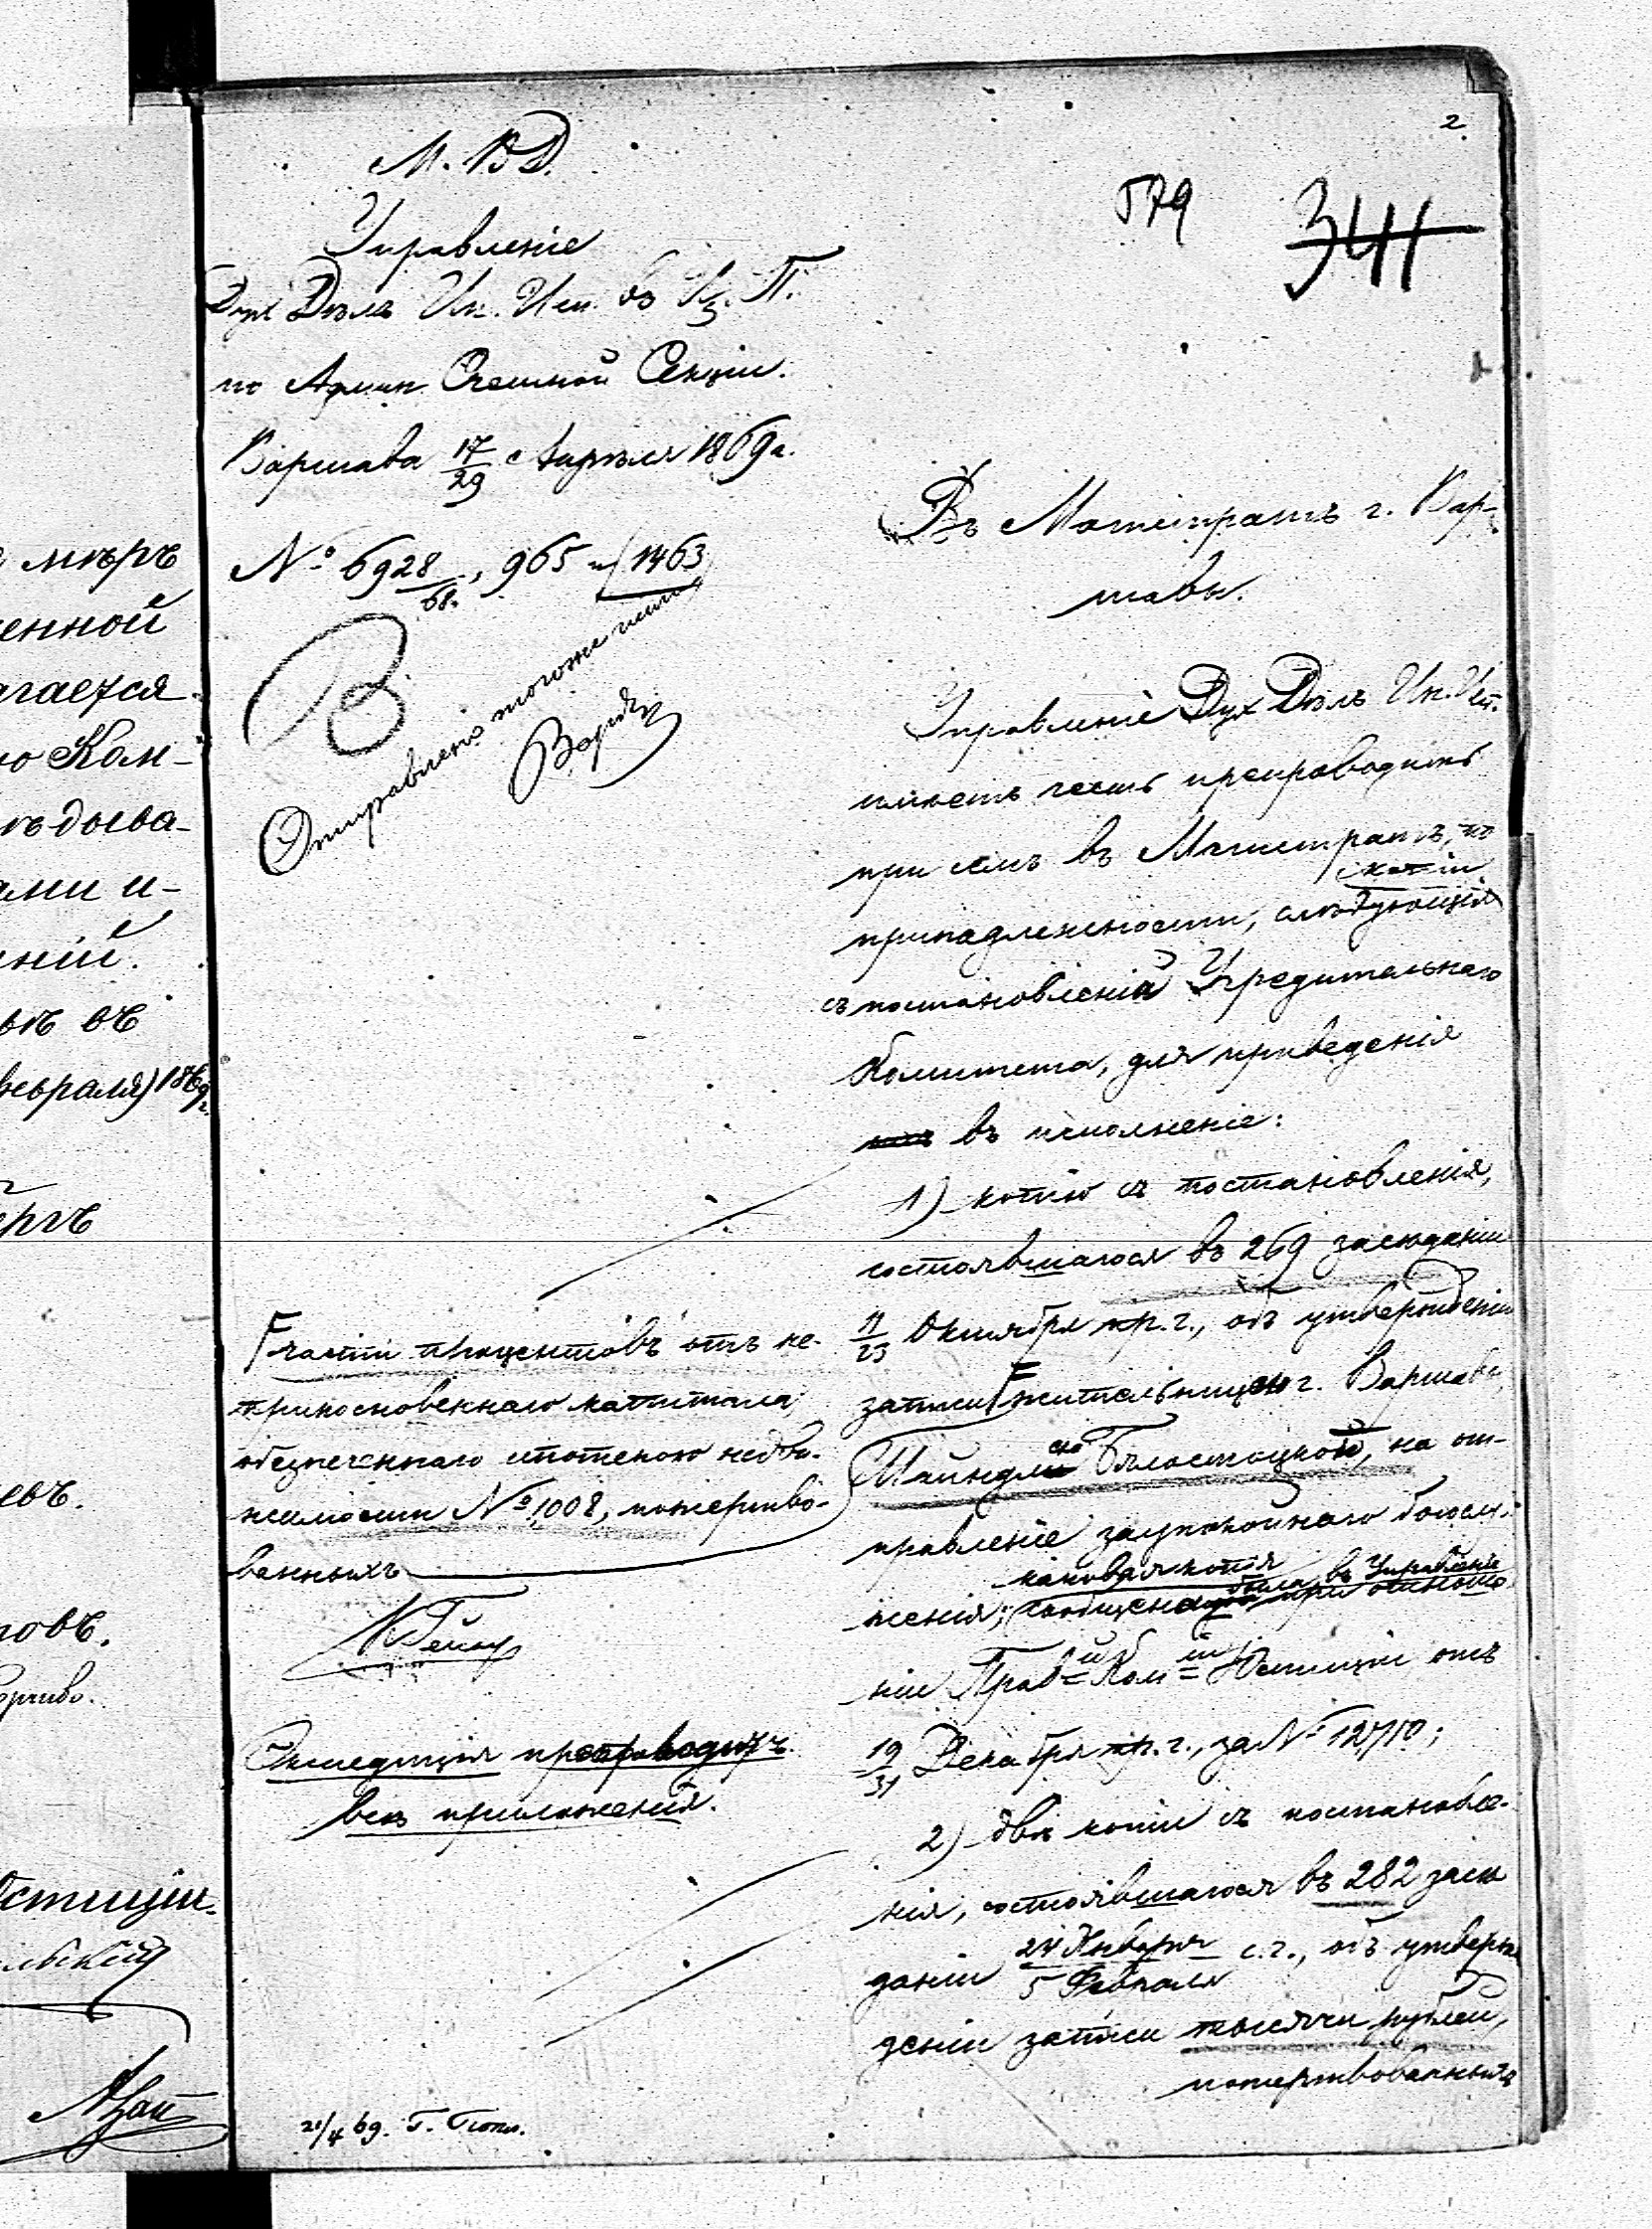 2.
579
341
М. В. Д.
Управленіе
Дух. Дѣлъ Ин. Исп. въ Ц. П.
по Админ. Счетной Секціи.
Варшава 17/29 Апрѣля 1869 г.
№ 6928/68., 965 и 1463
Отправлено того же числа
Въ Магистратъ г. Вар-
шавы.
Управленіе Дух Дѣлъ Ин. Исп.
имѣетъ честь препроводить
при семъ въ Магистратъ, по
копіи
принадлежности, слѣдующія
съ постановленій Учредительнаго
Комитета, для приведенія
въ исполненіе:
1) копію съ постановленія,
состоявшагося въ 269 засѣданіи
11/23 Октября пр. г., объ утвержденіи
записи жительницею г. Варшавы,
Бѣлостоцкой, на от-
правленіе заупокойнаго богослу-
каковая копія была въ Управленіе
женія; сообщена при отноше-
ніи Прав-й Ком-іи Юстиціи отъ
19/31 Декабря пр. г., за № 12710;
2) двѣ копіи съ постановле-
нія, состоявшагося въ 282 засѣ
даніи 24 Января/5 Февраля с. г., объ утверж
деніи записи тысячи рублей,
пожертвованныхъ
части процентовъ отъ не-
прикосновеннаго капитала,
обезпеченнаго ипотекою недви-
жимости № 1008, пожертво-
ванныхъ
Экспедиція препроводитъ
всѣ приложенія.
21/4 69.
мѣръ
енной
агается
о Ком-
ами и-
ній.
въ
февраля) 1869 г.
евъ.
новъ.
Юстиціи.